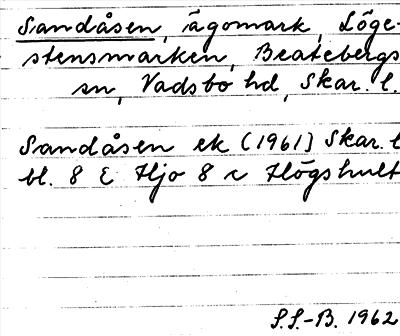 Sandåsen, ägomark, Löge-
stensmarken, Beatebergs
sn, Vadsbo hd, Skar. l.
Sandåsen ek (1961) Skar. l
bl. 8 E Hjo 8 c Högshult
S.S.-B. 1962